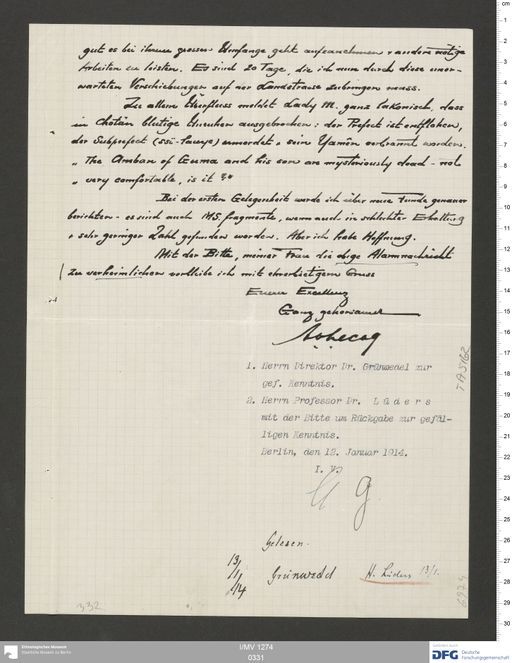 gut es bei ihrem grossen Umfange geht aufzunehmen & andere nötige
Arbeiten zu leisten. Es sind 20 Tage, die ich nun durch diese uner-
warteten Verschiebungen auf der Landstrasse zubringen muss.
Zu allem Überfluss meldet Lady M. ganz lakonisch, dass
in Chotän blutige Unruhen ausgebrochen: der Prefect ist entflohen,
der Subprefect (ssi-lauye) ermordet & sein Yamên verbrannt worden.
„ The Amban of Guma and his son are mysteriously dead - not
„ very comfortable, is it?"
Bei der ersten Gelegenheit werde ich über neue Funde genauer
berichten - es sind auch MS. fragmente, wenn auch in schlechter Erhaltung
& sehr geringer Zahl gefunden worden. Aber ich habe Hoffnung.
Mit der Bitte, meiner Frau die obige Alarmnachricht
zu verheimlichen verbleibe ich mit ehrerbietigem Gruss
Eurer Excellenz
Ganz gehorsamst
1. Herrn Direktor Dr. Grünwedel zur
gef. Kenntnis.
2. Herrn Professor Dr. L ü d e r s
mit der Bitte um Rückgabe zur gefäl-
ligen Kenntnis.
Berlin, den 12. Januar 1914.
I. V.
G.
Gelesen.
13/
/1
/14
Grünwedel
H. Lüders 13/1.
TA 5162
332
I/MV 1274
0331
Ethnologisches Museum
Staatliche Museen zu Berlin
DFG
Deutsche
Forschungsgemeinschaft
cm
1
2
3
4
5
6
7
8
9
10
11
12
13
14
15
16
17
18
19
20
21
22
23
24
25
26
27
28
29
30